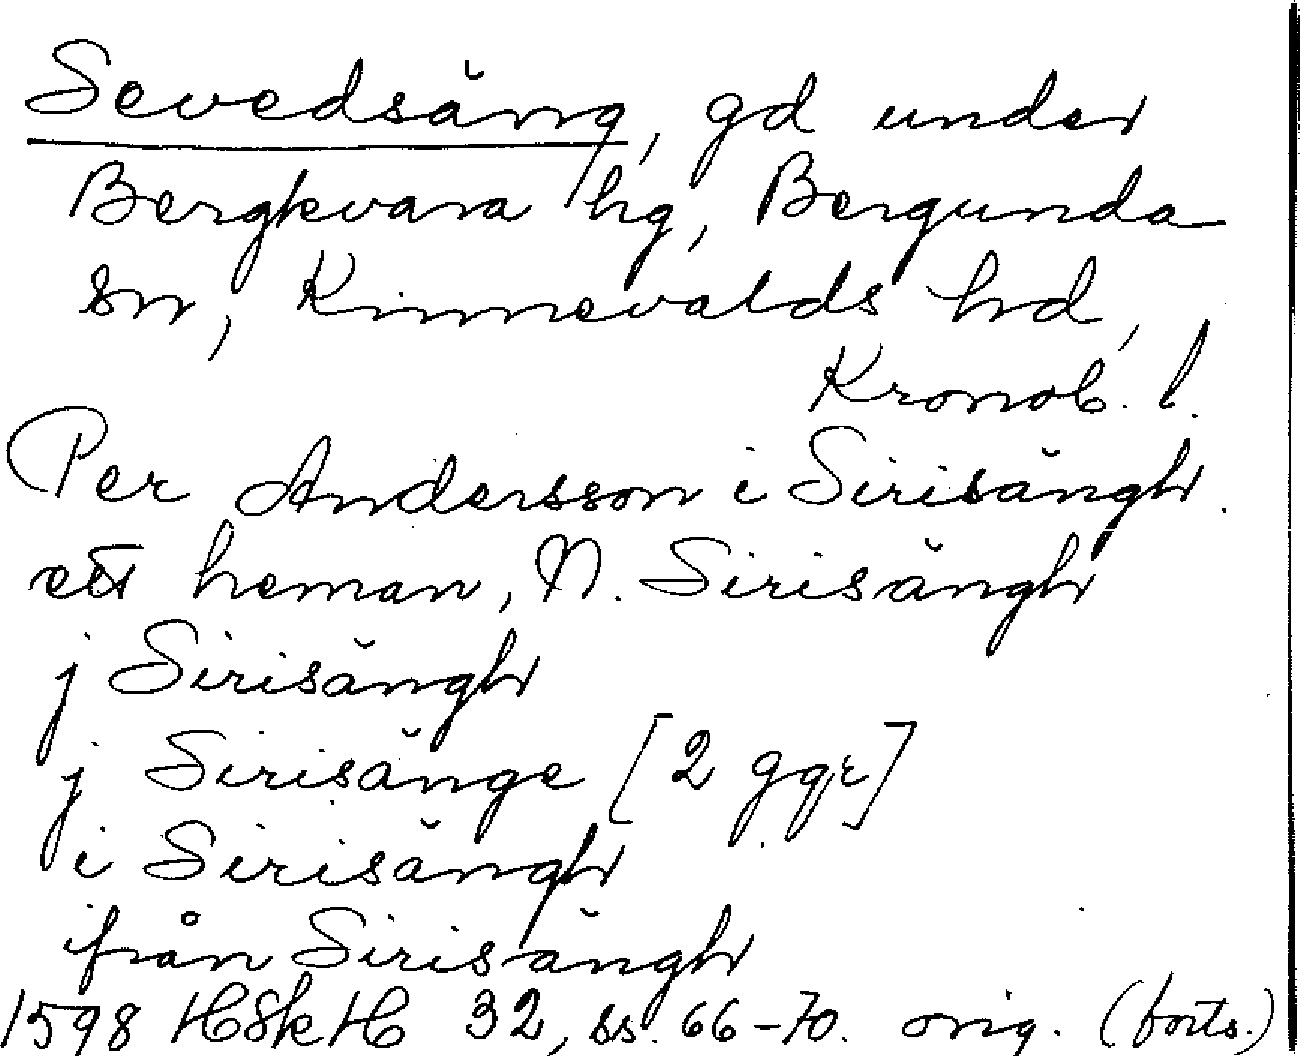 Sevedsäng, gd under
Bergkvara hg, Bergunda
sn, Kinnevalds hd,
Kronob. l.
Per Andersson i Sirisängh
ett heman, N. Sirisängh
j Sirisängh
j Sirisänge [2 ggr]
i Sirisängh
från Sirisängh
1598 HSkH 32, ss. 66-70. orig. (forts.)